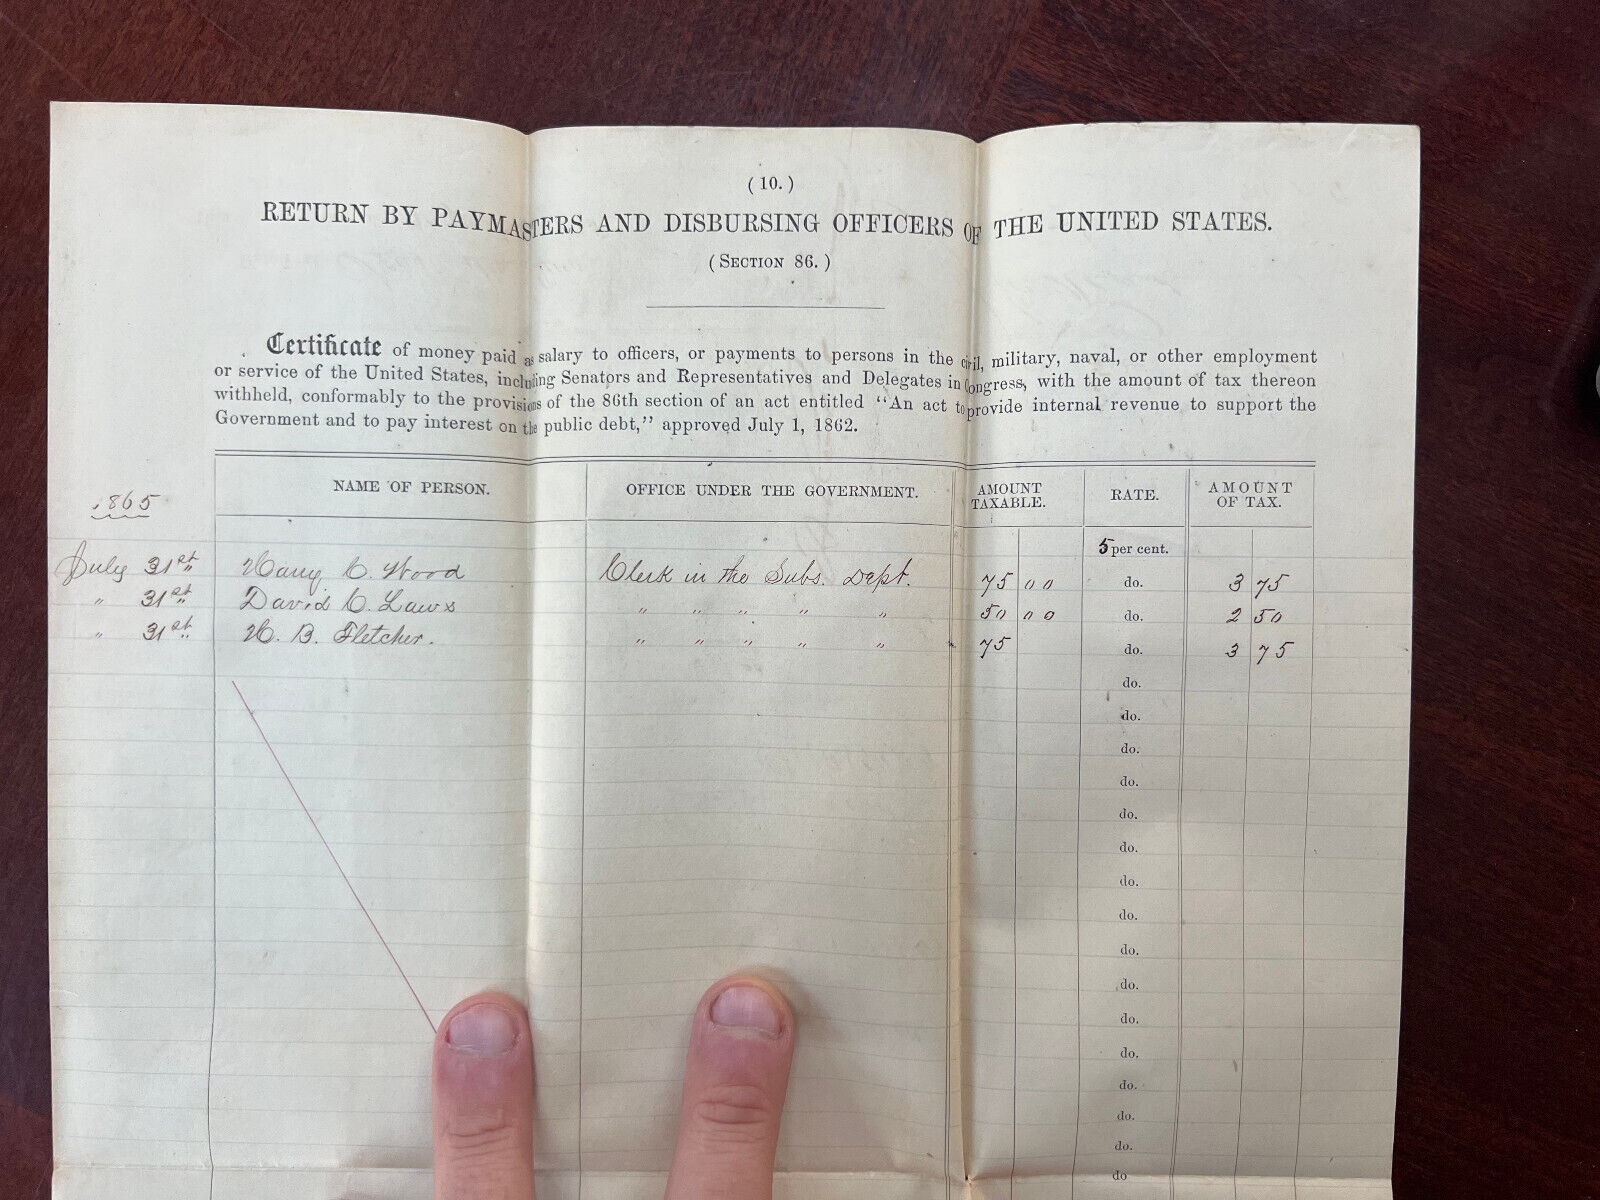 ( 10. )
RETURN BY PAYMASTERS AND DISBURSING OFFICERS OF THE UNITED STATES.
( SECTION 86. )
Certificate of money paid as salary to officers, or payments to persons in the civil, military, naval, or other employment
or service of the United States, including Senators and Representatives and Delegates in Congress, with the amount of tax thereon
withheld, conformably to the provisions of the 86th section of an act entitled "An act to provide internal revenue to support the
Government and to pay interest on the public debt," approved July 1, 1862.
1865 NAME OF PERSON. OFFICE UNDER THE GOVERNMENT. AMOUNT TAXABLE. RATE. AMOUNT OF TAX.
5 per cent.
July 31st Harry C. Wood Clerk in the Subs. Dept. 75 00 do. 3 75
" 31st David C. Laws " " " " " 50 00 do. 2 50
" 31st H. B. Fletcher. " " " " " 75 do. 3 75
do.
do.
do.
do.
do.
do.
do.
do.
do.
do.
do.
do.
do.
do.
do.
do